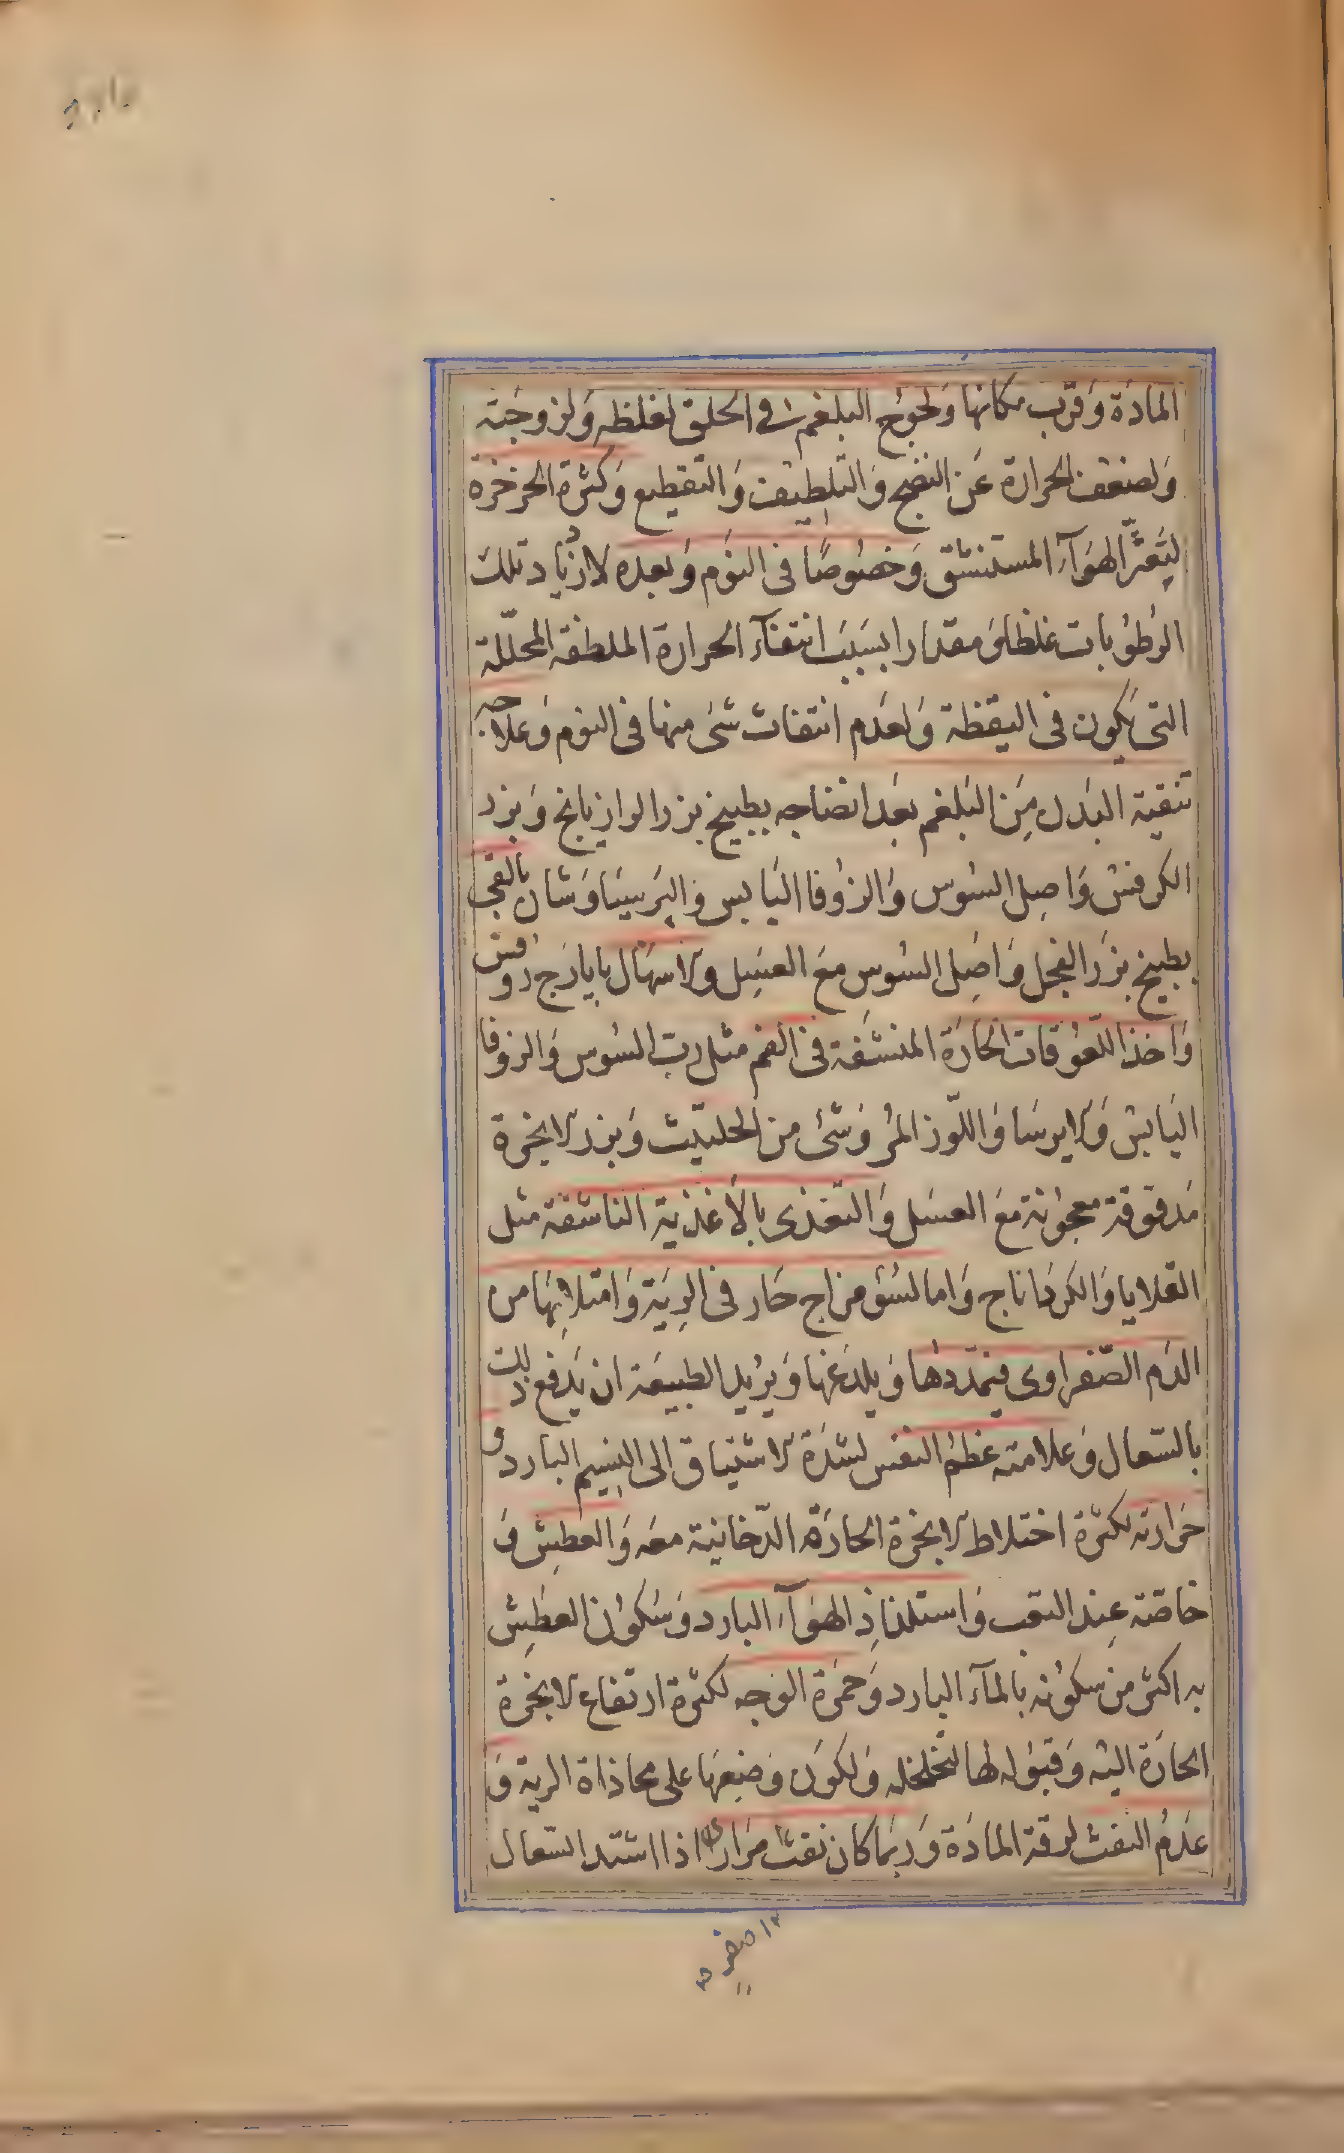 المادة وقرب مكانها ولحوج البلغم في الحلق لغلظه ولزوجته
ولضعف الحرارة عن النضج والتلطيف والتقطيع وكثرة الخرخرة
لتعثر الهوآء المستنشق وخصوصًا في النوم وبعده لازدياد تلك
الرطوبات غلظا ومقدارا بسبب انتفآء الحرارة الملطفة المحلّلة
التي يكون في اليقظة ولعدم انتفاث شئ منها في النوم وعلاجه
تنقية البدن من البلغم بعد انضاجه بطبيخ بزر الرازيانج وبزر
الكرفس واصل السوس والزوفا اليابس والبرسياوشان بالقئ
بطبيخ بزر الفجل واصل السوس مع العسل والاسهال بايارج روفس
واخذ اللعوقات الحارة المنشفة في الفم مثل رب السوس والزوفا
اليابس والايرسا واللوز المر وشئ من الحلتيث وبزر الانجرة
مدقوقة معجونة مع العسل والتغذى بالأغذية الناشفة مثل
القلايا والكردناج واما لسوء مزاج حار في الرية وامتلائها من
الدم الصفراوى فيمددها ويلدغها ويريد الطبيعة ان يدفع ذلك
بالسعال وعلامته عظم النفس لشدة الاشتياق الى النسيم البارد و
حرارته لكثرة اختلاط الابخرة الحادة الدخانية معه والعطش و
خاصّة عند التعب واستلذاذ الهوآء البارد وسكون العطش
به اكثر من سكونه بالمآء البارد وحمرة الوجه لكثرة ارتفاع الابخرة
الحارة اليه وقبوله لها لتخلخله ولكون وضعها على محاذاة الرية و
عدم النفث لرقة المادة وربما كان نفث مرارى اذا اشتد السعال